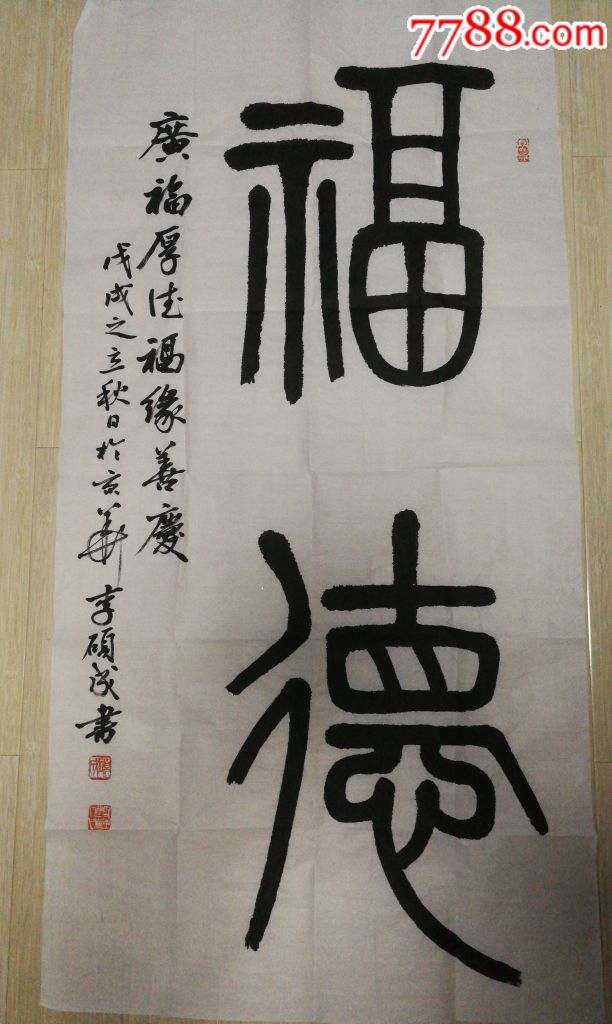 7788.com
福德
廣福厚德福緣善慶
戊戌之立秋日於京華李碩成書